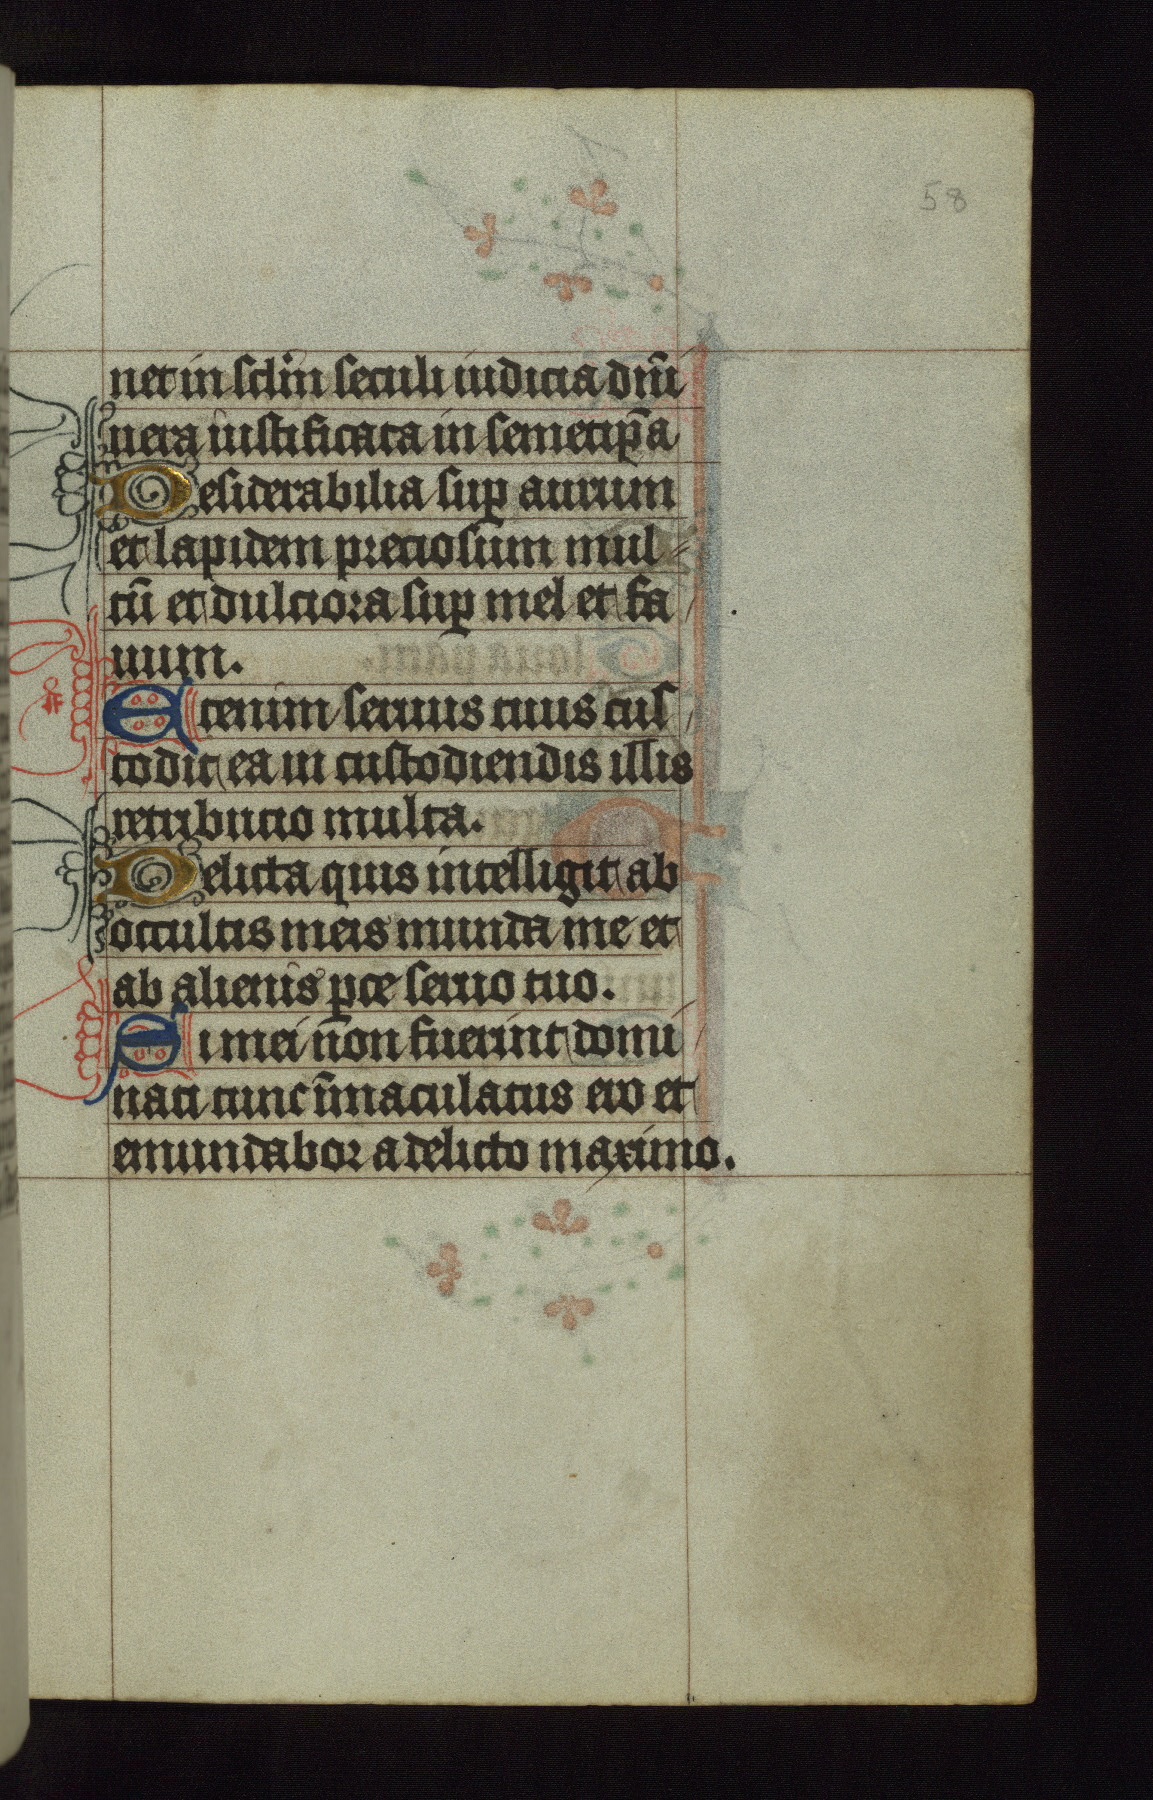 58
net in sclm̄ seculi iudicia dm̄i
uera iustificata in semetip̄a
Desiderabilia sup̱ aurum
et lapidem preciosum mul
tū et dulciora sup̱ mel et fa
uum.
Etenim seruus tuus cus
todit ea in custodiendis illis
retributio multa.
Delicta quis intelligit ab
occultis meis munda me et
ab alienis p̱ce seruo tuo.
Si mei n̄on fuerint domi
nati tunc īmaculatus ero et
emundabor a delicto maximo.